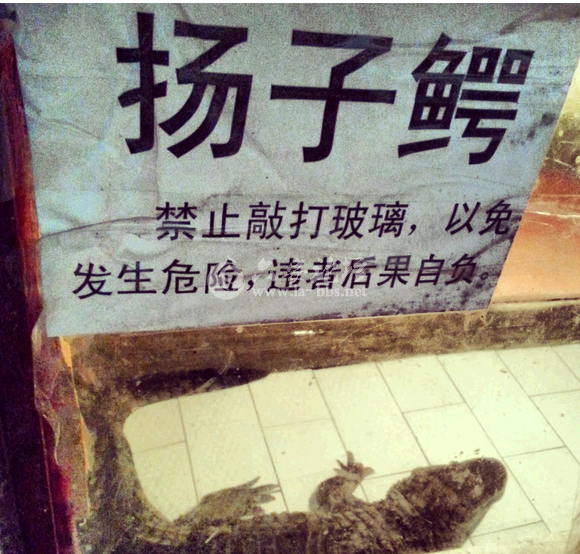 扬子鳄
禁止敲打玻璃，以免
发生危险，违者后果自负。
www.la-bbs.net